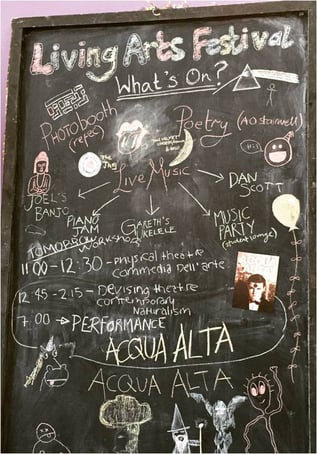 Living Arts Festival
What's On?
PHOTOBOOTH
(refec)
Poetry (AO stairwell)
The Jam
Live Music
JOEL'S
BANJO
PIANO
JAM
GARETH'S
UKELELE
MUSIC
PARTY
(student lounge)
DAN
SCOTT
TOMORROW workshops
11 00 - 12:30 - physical theatre
commedia Dell'arte
12:45 - 2:15 - Devising theatre
contemporary
Naturalism
7.00 → PERFORMANCE
ACQUA ALTA
ACQUA ALTA